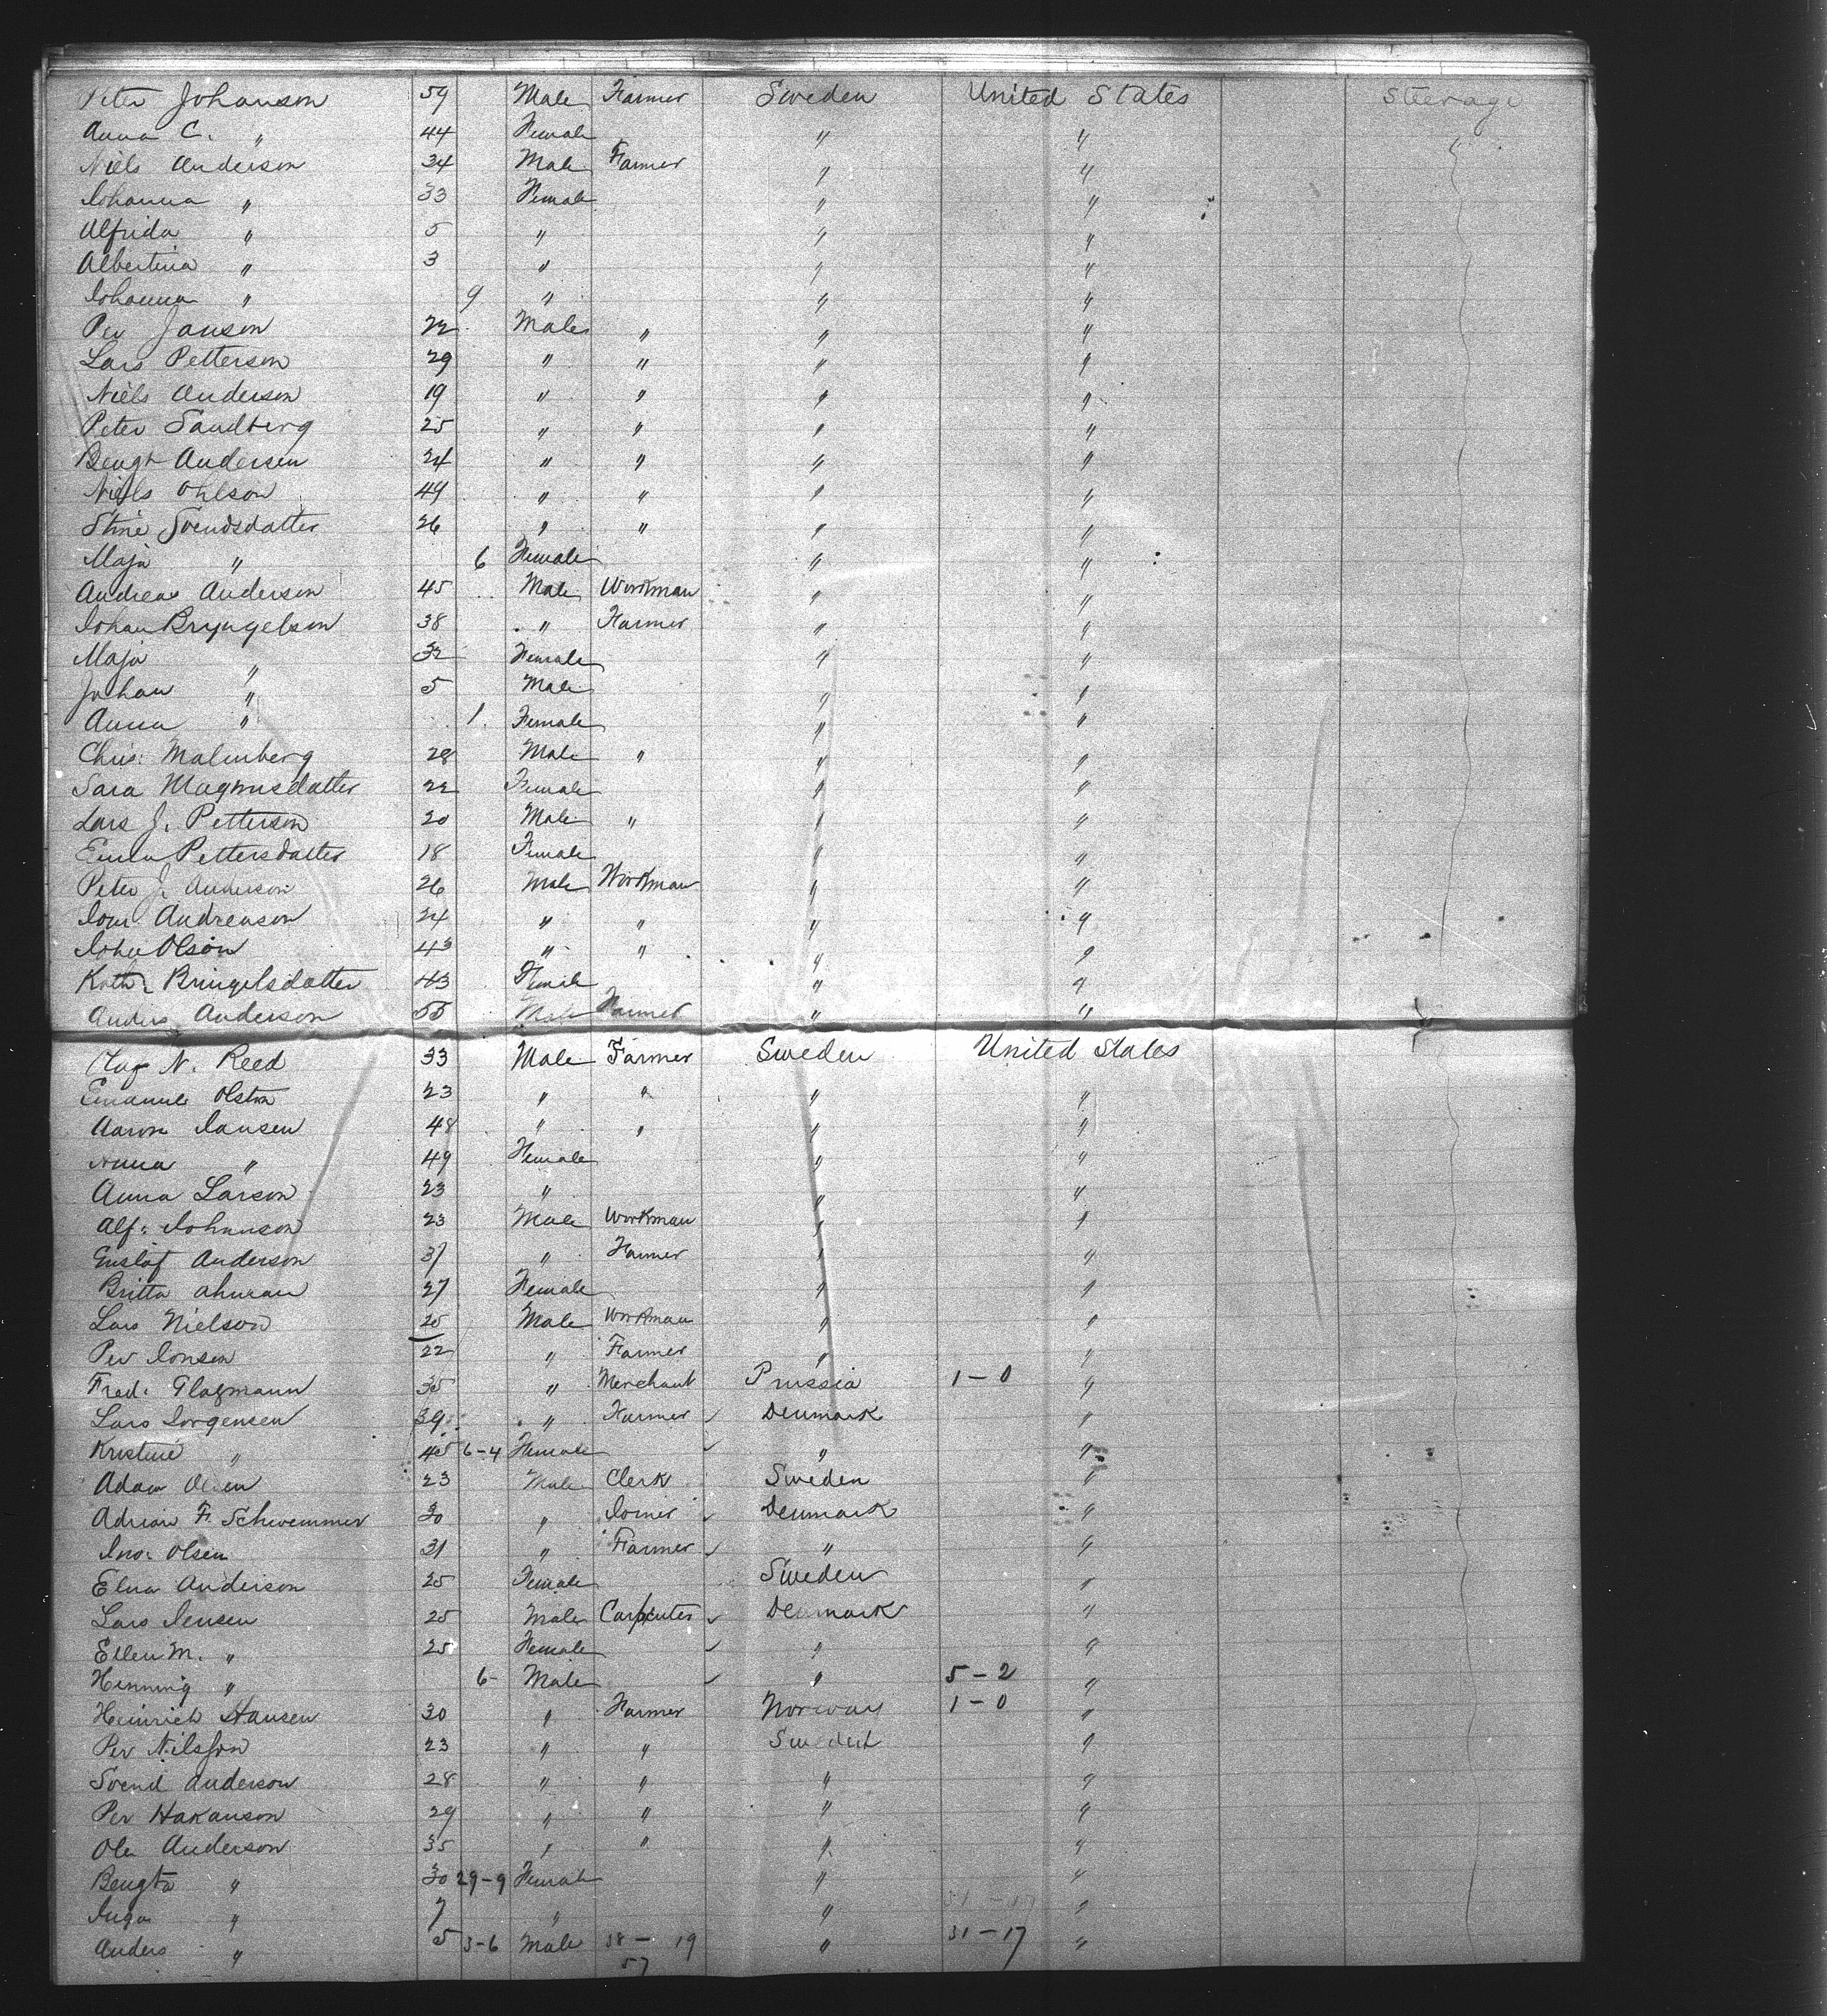 Peter Johanson 59 Male Farmer Sweden United States Steerage
Anna C. " 44 Female " "
Niels Anderson 34 Male Farmer " "
Johanna " 33 Female " "
Alfrida " 5 " " "
Albertina " 3 " " "
Johanna " 9 " " "
Per Janson 22 Male " " "
Lars Petterson 29 " " " "
Niels Anderson 19 " " " "
Peter Sandberg 25 " " " "
Bengt Andersen 24 " " " "
Niels Ohlson 49 " " " "
Stine Svendsdatter 26 " " " "
Maja " 6 Female " "
Andreas Anderson 45 Male Workman " "
Johan Bryngelson 38 " Farmer " "
Maja " 32 Female " "
Johan " 5 Male " "
Anna " 1. Female " "
Chris: Malmberg 28 Male " " "
Sara Magnusdatter 22 Female " "
Lars J. Petterson 20 Male " " "
Emma Pettersdatter 18 Female " "
Peter J. Anderson 26 Male Workman " "
Andreason 24 " " " "
Olson 43 " " " "
Kath: Bringelsdatter 43 Female " "
Anders Anderson 55 Male Farmer " "
N. Reed 33 Male Farmer Sweden United States
Emanuel Olston 23 " " " "
Aaron Jansen 48 " " " "
Anna " 49 Female " "
Anna Larson 23 " " "
Alf: Johanson 23 Male Workman " "
Gustof Anderson 37 " Farmer " "
Britta Ahman 27 Female " "
Lars Nielson 25 Male Workman " "
Per Jonsen 22 " Farmer " "
Fred: Glagmann 35 " Merchant Prussia 1-0 "
Lars Jorgensen 39 " Farmer Denmark "
Kristine " 45 6-4 Female " "
Adam Olsen 23 Male Clerk Sweden "
Adrian F. Schwemmer 30 " Joiner Denmark "
Jno: Olsen 31 " Farmer " "
Elna Anderson 25 Female Sweden "
Lars Jensen 25 Male Carpenter Denmark "
Ellen M. " 25 Female " "
Henning " 6- Male " 5-2 "
Heinrich Hansen 30 " Farmer Norway 1-0 "
Per Nilsson 23 " " Sweden "
Svend Anderson 28 " " " "
Per Hakanson 29 " " " "
Ole Anderson 35 " " " "
Bengta " 30 29-9 Female " "
Inga " 7 " " 31-17 "
Anders " 5 3-6 Male 38-19 " 31-17 "
57